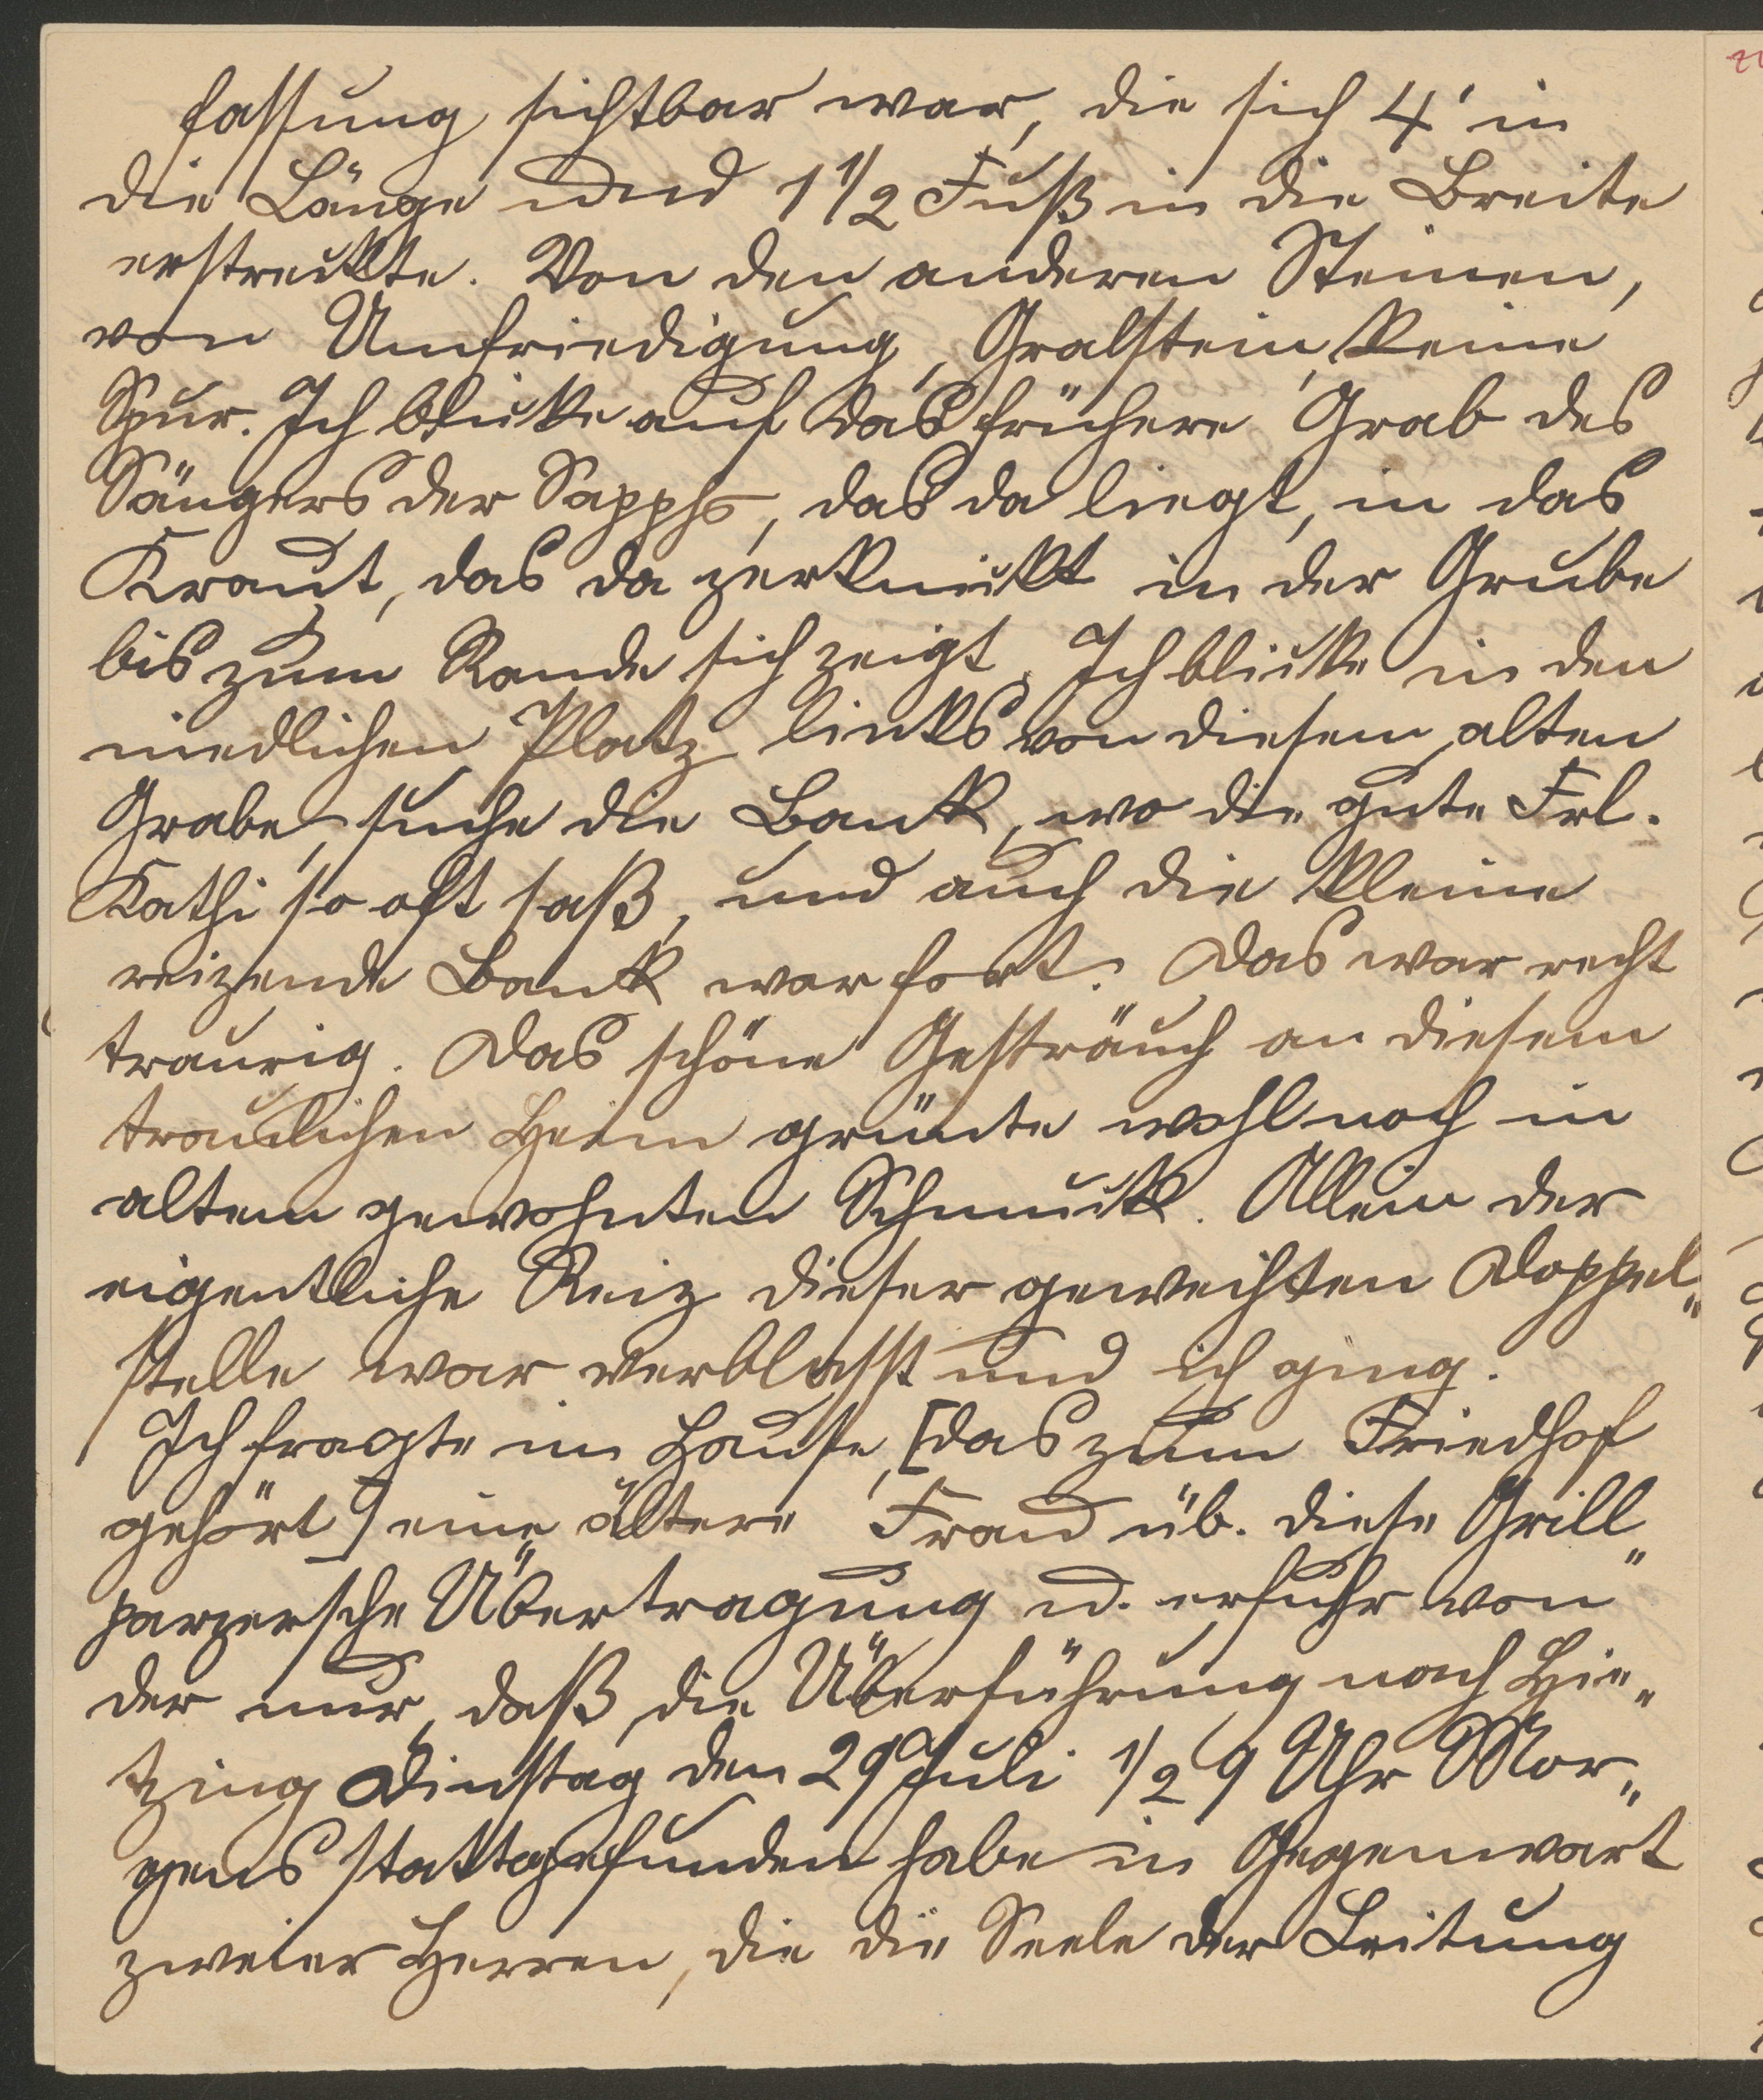 fassung sichtbar war, die sich 4' in
die Länge und 1 1/2 Fuß in die Breite
erstreckte. Von den anderen Steinen,
von Umfriedigung, Grabstein, keine
Spur. Ich blicke auf das frühere Grab des
Sängers der Sappho, das da liegt, in das
Kraut, das da zerknickt in der Grube
bis zum Rande sich zeigt. Ich blicke in den
niedlichen Platz links von diesem alten
Grabe, suche die Bank, wo die gute Frl.
Kathi so oft saß, und auch die kleine
reizende Bank war fort. Das war recht
traurig. Das schöne Gesträuch an diesem
traulichen Heim grünte wohl noch in
altem gewohnten Schmuck. Allein der
eigentliche Reiz dieser geweihten Doppel„
stelle war verblasst und ich ging.
Ich fragte im Hause, [das zum Friedhof
gehört] eine ältere Frau üb. diese Grill„
parzersche Übertragung u. erfuhr von
der nur, daß die Überführung nach Hie„
tzing Dinstag den 29 Juli 1/2 9 Uhr Mor„
gens stattgefunden habe in Gegenwart
zweier Herren, die die Seele der Leitung